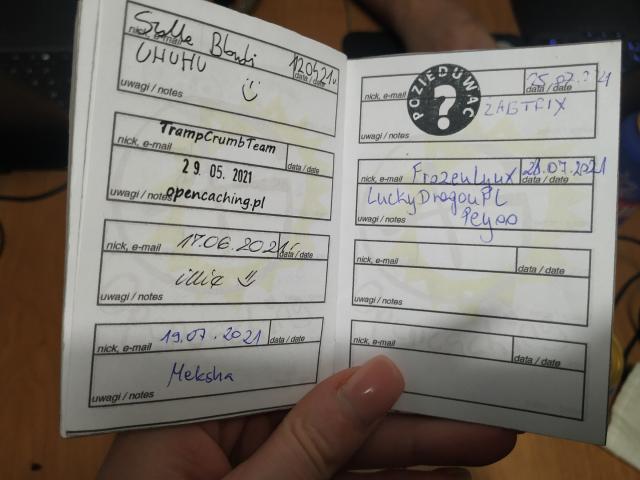 nick, e-mail
12.04.21
data / date
UHUHU
uwagi / notes
TrampCrumbTeam
nick, e-mail
data / date
29.05.2021
opencaching.pl
uwagi / notes
nick, e-mail
17.06.2021
data / date
uwagi / notes
19.07.2021
nick, e-mail
data / date
Meksha
uwagi / notes
POZIEDUWAC
?
nick, e-mail
data / date
uwagi / notes
FrozenLynX
28.07.2021
nick, e-mail
data / date
LuckyDragonPL
uwagi / notes
nick, e-mail
data / date
uwagi / notes
nick, e-mail
data / date
uwagi / notes